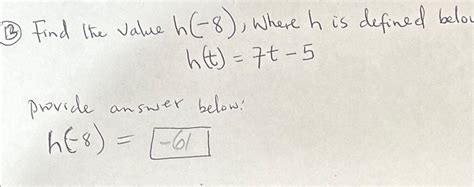 13 Find the value h(-8), where h is defined below
h(t) = 7t - 5
provide answer below:
h(-8) = -61